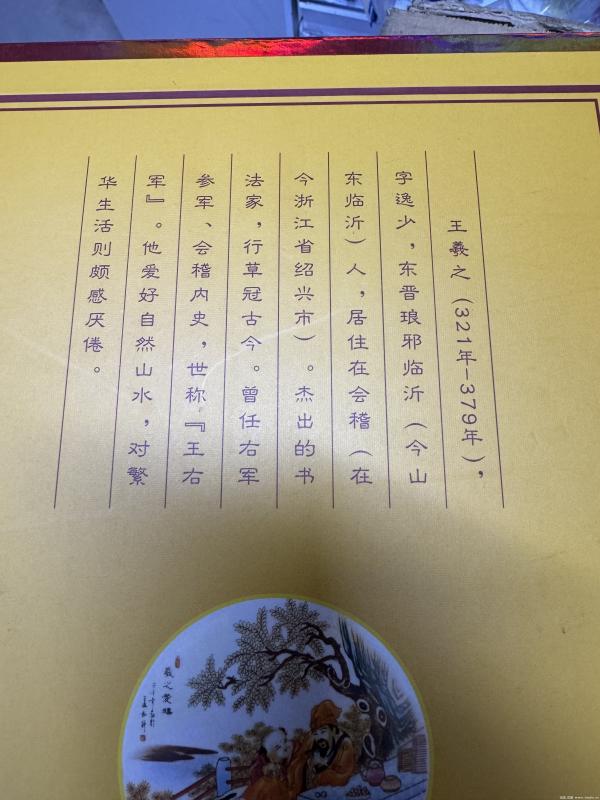 王羲之（321年—379年），
字逸少，东晋琅邪临沂（今山
东临沂）人，居住在会稽（在
今浙江省绍兴市）。杰出的书
法家，行草冠古今。曾任右军
参军、会稽内史，世称『王右
军』。他爱好自然山水，对繁
华生活则颇感厌倦。
羲之爱鹅